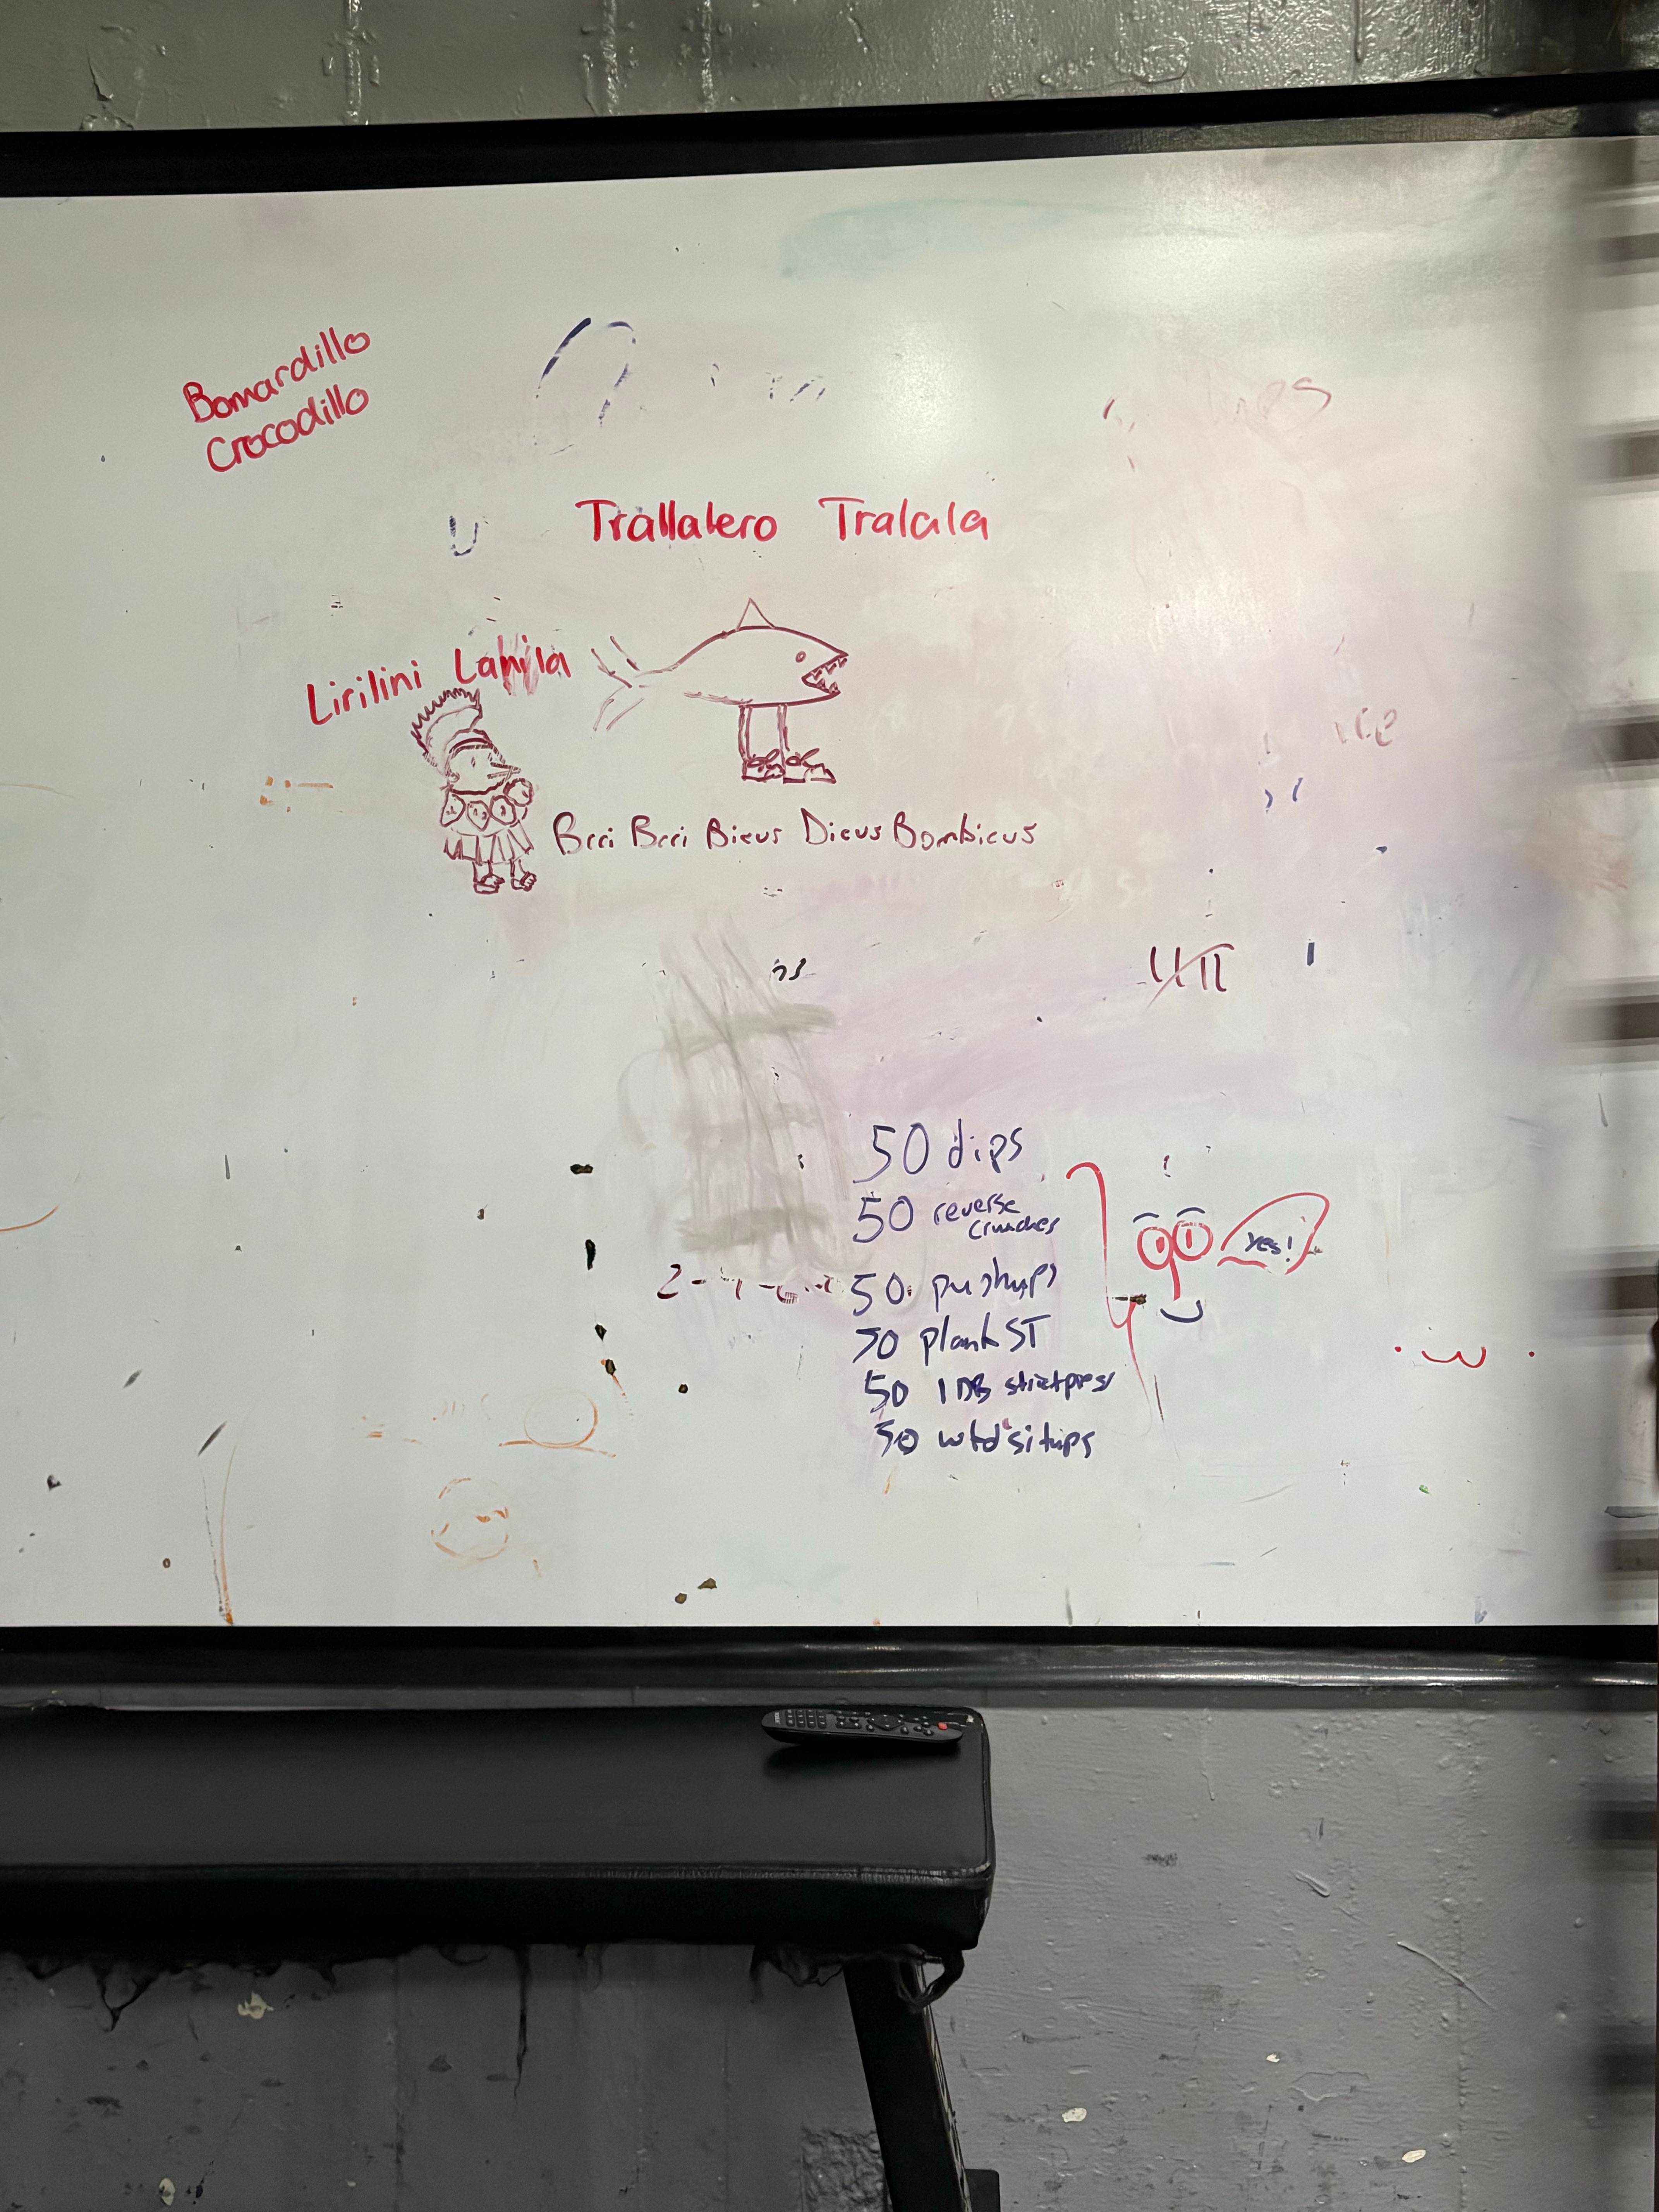 Bomardillo
Crocodillo
Trallalero Tralala
Lirilini Lahila
Brri Brri Bicus Dicus Bombicus
50 dips
50 reverse
crunches
50 pushups
50 plank ST
50 1 DB strictpress
50 wtd situps
yes!